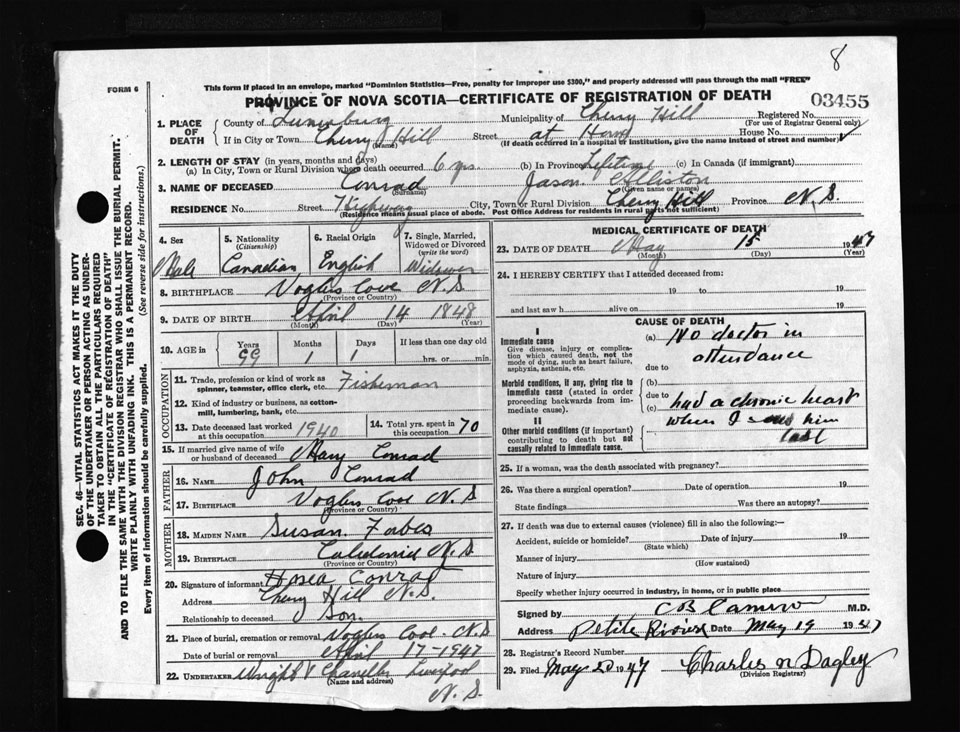 8
FORM 6
This form if placed in an envelope, marked "Dominion Statistics—Free, penalty for improper use $300," and properly addressed will pass through the mail "FREE"
PROVINCE OF NOVA SCOTIA—CERTIFICATE OF REGISTRATION OF DEATH
03455
1. PLACE OF DEATH County of Lunenburg Municipality of Cherry Hill Registered No.
(For use of Registrar General only)
If in City or Town Cherry Hill (Name) Street at Home House No. ✓
(If death occurred in a hospital or institution, give name instead of street and number)
2. LENGTH OF STAY (in years, months and days)
(a) In City, Town or Rural Division where death occurred 6 yrs. (b) In Province Lifetime (c) In Canada (if immigrant)
3. NAME OF DECEASED Conrad (Surname) Jason Alliston (Given name or names)
RESIDENCE No. Street Highway City, Town or Rural Division Cherry Hill Province N.S.
(Residence means usual place of abode. Post Office Address for residents in rural parts not sufficient)
4. Sex Male
5. Nationality (Citizenship) Canadian
6. Racial Origin English
7. Single, Married, Widowed or Divorced (write the word) Widower
8. BIRTHPLACE Voglers Cove N.S.
(Province or Country)
9. DATE OF BIRTH April 14 1848
(Month) (Day) (Year)
10. AGE in Years 99 Months 1 Days 1 If less than one day old hrs. or min.
OCCUPATION
11. Trade, profession or kind of work as spinner, teamster, office clerk, etc. Fisherman
12. Kind of industry or business, as cotton-mill, lumbering, bank, etc.
13. Date deceased last worked at this occupation 1940
14. Total yrs. spent in this occupation 70
15. If married give name of wife or husband of deceased Mary Conrad
FATHER
16. Name John Conrad
17. Birthplace Voglers Cove N.S
(Province or Country)
MOTHER
18. MAIDEN NAME Susan Forbes
19. BIRTHPLACE Caledonia N.S.
(Province or Country)
20. Signature of informant Hosea Conrad
Address Cherry Hill N.S.
Relationship to deceased Son.
21. Place of burial, cremation or removal Voglers Cove - N.S
Date of burial or removal April 17-1947
22. UNDERTAKER Wright Chandler Liverpool
(Name and address)
N.S.
MEDICAL CERTIFICATE OF DEATH
23. DATE OF DEATH May 15 1947
(Month) (Day) (Year)
24. I HEREBY CERTIFY that I attended deceased from:
19 to 19
and last saw h alive on 19
CAUSE OF DEATH
I
Immediate cause
Give disease, injury or complication which caused death, not the mode of dying, such as heart failure, asphyxia, asthenia, etc.
(a) No doctor in
attendance
due to
Morbid conditions, if any, giving rise to immediate cause (stated in order proceeding backwards from immediate cause).
(b)
due to
(c) had a chronic heart
II
Other morbid conditions (if important) contributing to death but not causally related to immediate cause.
when I saw him
last
25. If a woman, was the death associated with pregnancy?
26. Was there a surgical operation? Date of 19
State findings Was there an autopsy?
27. If death was due to external causes (violence) fill in also the following:—
Accident, suicide or homicide? Date of injury 19
(State which)
Manner of injury
(How sustained)
Nature of injury
Specify whether injury occurred in industry, in home, or in public place
Signed by CB Cameron M.D.
Address Petite Riviere Date May 19 1947
28. Registrar's Record Number
29. Filed May 20 1947 Charles N Dagley
(Division Registrar)
SEC. 46—VITAL STATISTICS ACT MAKES IT THE DUTY
OF THE UNDERTAKER OR PERSON ACTING AS UNDER-
TAKER TO OBTAIN ALL THE PARTICULARS REQUIRED
IN THE "CERTIFICATE OF REGISTRATION OF DEATH"
AND TO FILE THE SAME WITH THE DIVISION REGISTRAR WHO SHALL ISSUE THE BURIAL PERMIT.
WRITE PLAINLY WITH UNFADING INK. THIS IS A PERMANENT RECORD.
Every item of information should be carefully supplied. (See reverse side for instructions.)